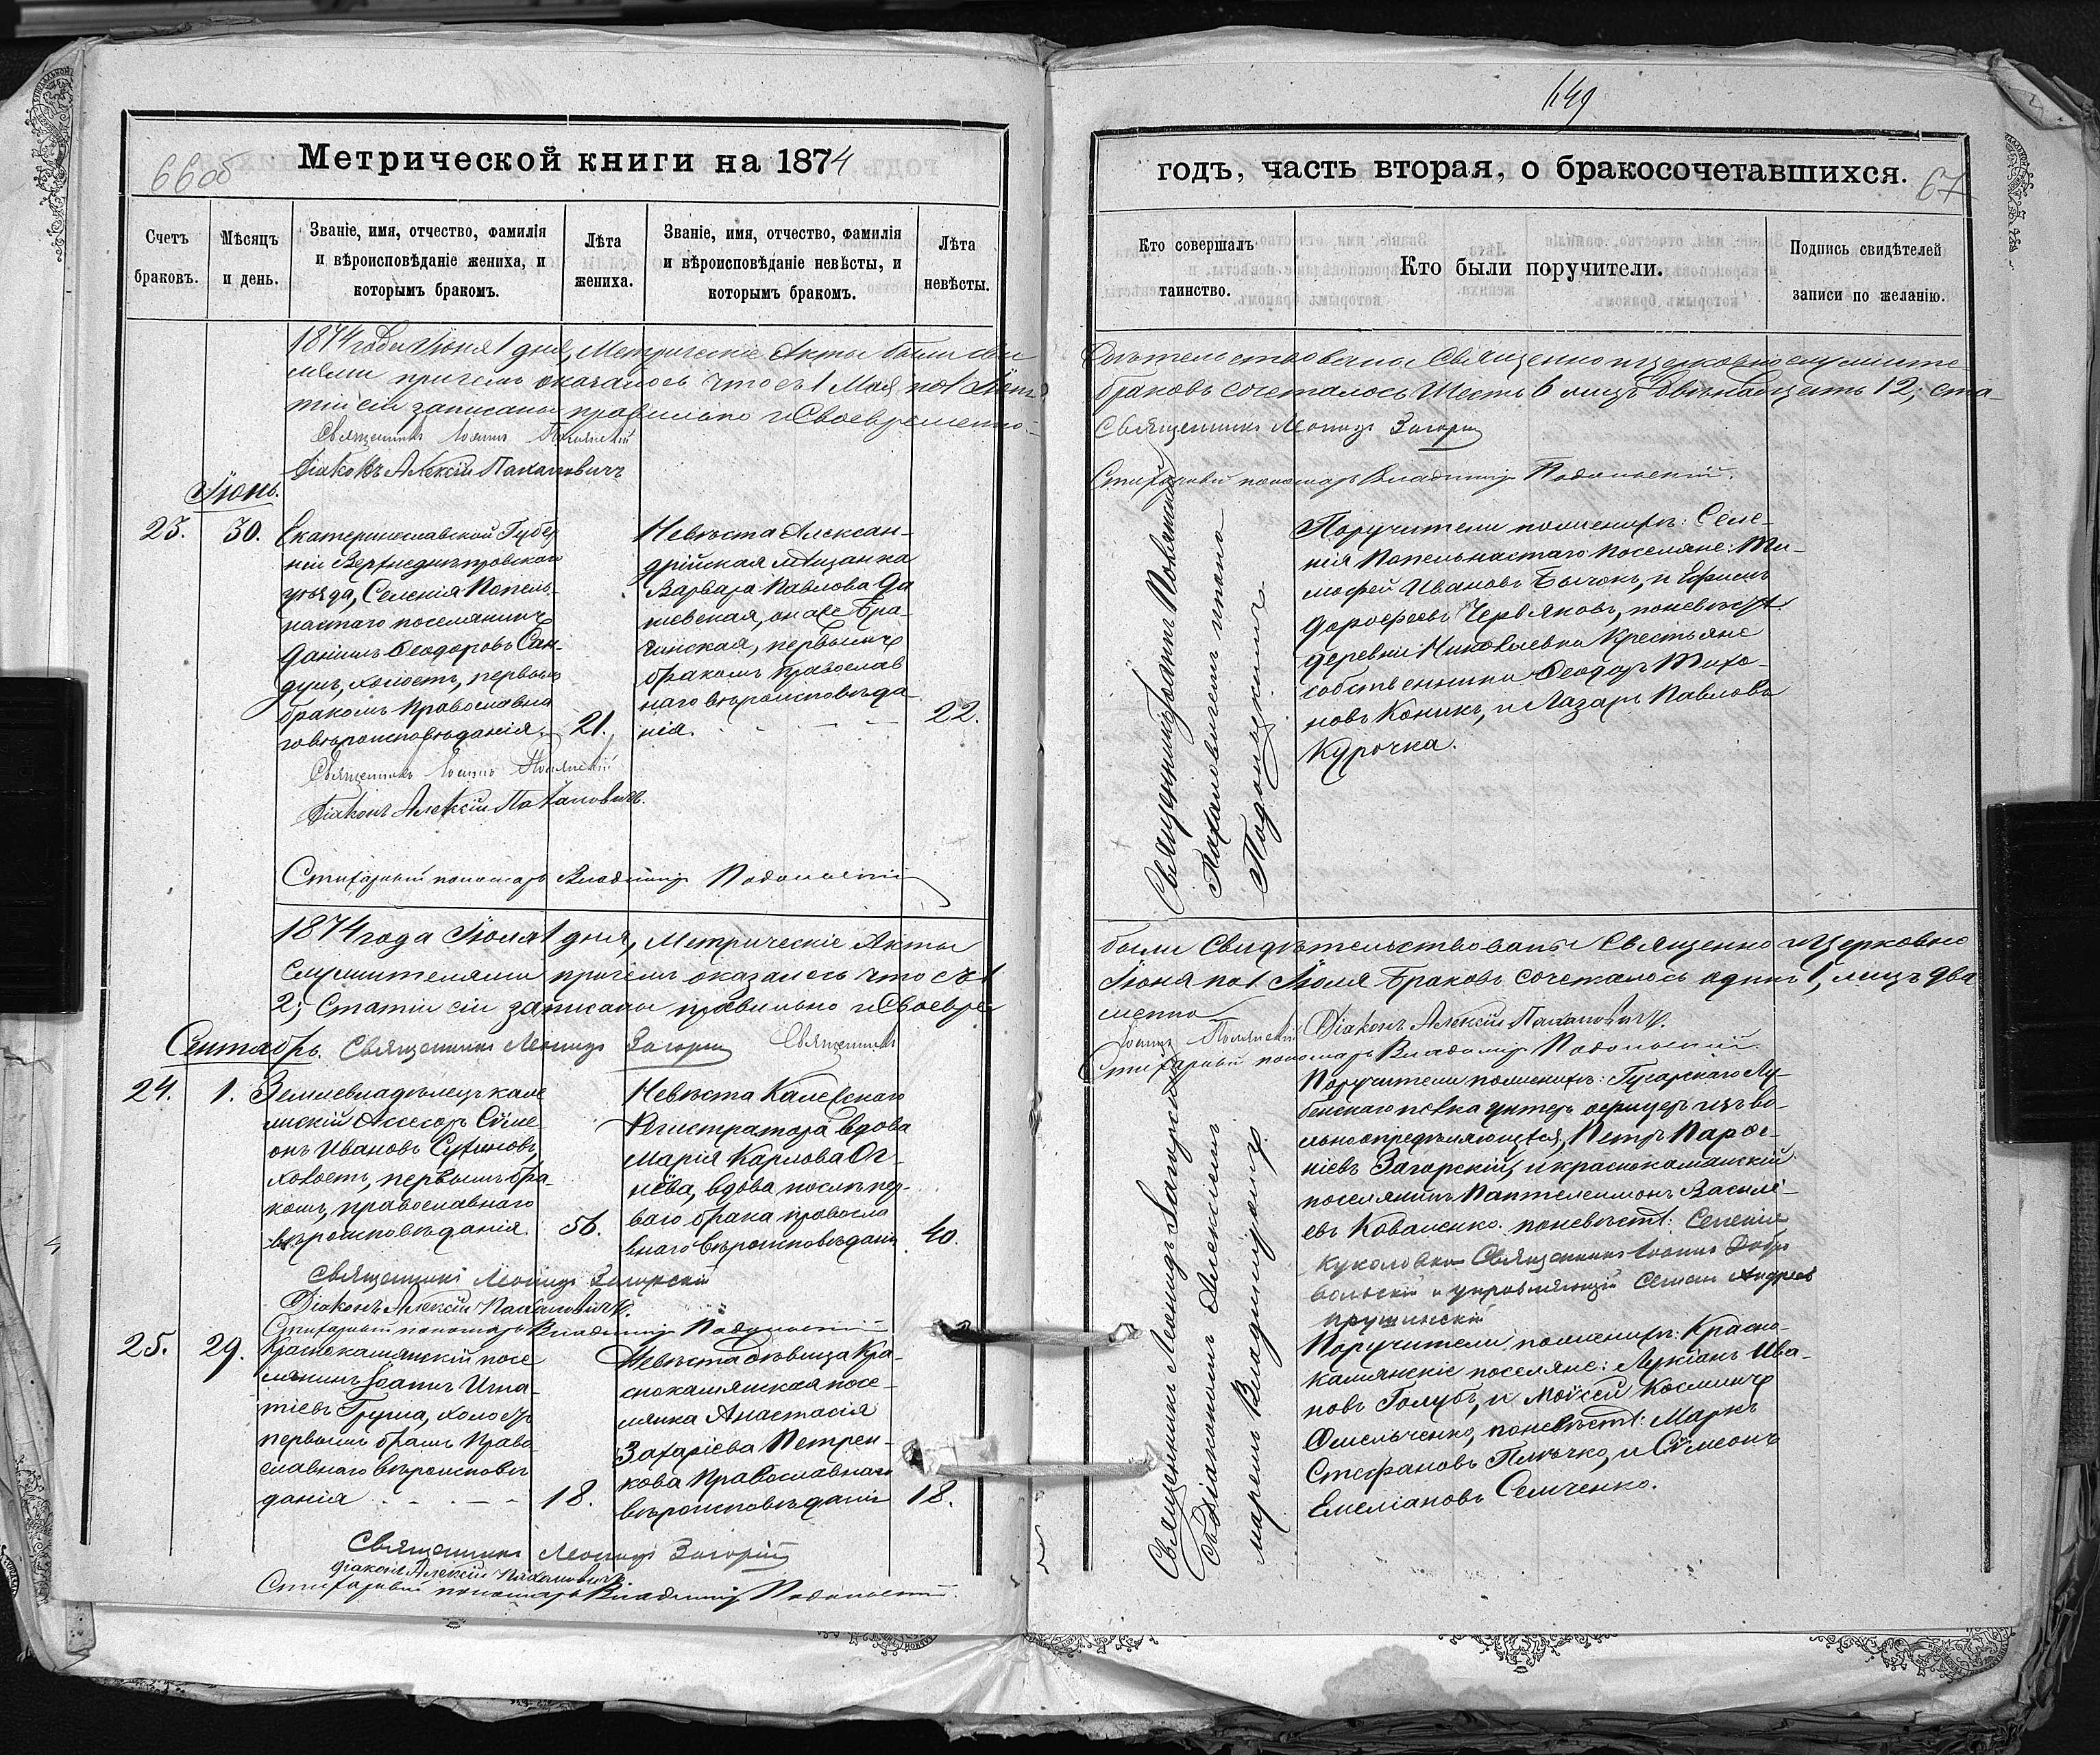 149
66об
Метрической книги на 1874
годъ, часть вторая, о бракосочетавшихся.
67
Счетъ браковъ.
Мѣсяцъ и день.
Званіе, имя, отчество, фамилія и вѣроисповѣданіе жениха, и которымъ бракомъ.
Лѣта жениха.
Званіе, имя, отчество, фамилія и вѣроисповѣданіе невѣсты, и которымъ бракомъ.
Лѣта невѣсты.
Кто совершалъ таинство.
Кто были поручители.
Подпись свидѣтелей записи по желанію.
1874 года Іюня 1 дня, Метрическіе Акты были сви
дѣтельствованы Священно и церковнослужите
лями причемъ оказалось что съ 1 Мая по 1 Іюня
браковъ сочеталось Шесть 6 лицъ двѣнадцать 12; ста
тіи сіи записаны правильно и Своевременно
Священникъ Іоаннъ
Священникъ Леонидъ Загорскій
Діаконъ Алексій Пахаловичъ
Стихарный пономарь Владиміръ Подольскій.
Іюнь.
23.
30.
Екатеринославской Губер
ніи Верхнеднѣпровскаго
уѣзда, Селенія Попель
настаго поселянинъ
Даніилъ Ѳеодоровъ Сан-
дулъ, холостъ, первымъ
бракомъ Православна
го вѣроисповѣданія.
21.
Невѣста Алексан-
дрійская мѣщанка
Варвара Павлова Да
шевская, она же Бра-
чинская, первымъ
бракомъ Православ
наго вѣроисповѣда
нія.
22.
Священникъ Іоаннъ
Пахаловичемъ и поно
Подольскимъ
Поручители по женихѣ: Селе-
нія Попельнастаго поселяне: Ти-
мофей Ивановъ Бычокъ, и Ефимъ
Дорофеевъ Червяковъ, по невѣстѣ
деревни Николаевки Крестьяне
собственники Ѳеодоръ Тихо-
новъ Коникъ, и Лазарь Павловъ
Курочка.
Священникъ Іоаннъ
Діаконъ Алексій Пахаловичъ.
Стихарный пономарь Владиміръ Подольскій
1874 года Іюля 1 дня, Метрическіе Акты
были Свидѣтельствованы Священно и Церковно
служителями причемъ оказалось что съ 1
Іюня по 1 Іюля Браковъ сочеталось одинъ 1, лицъ два
2; Статіи сіи записаны правильно и Своевре
менно
Сентябрь.
Священникъ Леонидъ Загорскій Священникъ
Іоаннъ
Діаконъ Алексій Пахаловичъ.
Стихарный пономарь Владиміръ Подольскій
24.
1.
Землевладѣлецъ колле
жскій Ассесоръ Сѵме
онъ Ивановъ
холостъ, первымъ бра-
комъ, православнаго
вѣроисповѣданія.
56.
Невѣста Колежскаго
Регистратора вдова
Марія Карлова Ог-
нёва, вдова послѣ пер-
ваго брака правосла
внаго вѣроисповѣданія
40.
Священникъ Леонидъ Загорскій
съ Діакономъ Алексіемъ
маремъ Владиміромъ
Поручители по женихѣ: Гусарскаго Лу-
бенскаго полка унтеръ офицеръ изъ во-
льноопредѣляющихся, Петръ
Загорскій, и краснокаменскій
поселянинъ Пантелеимонъ Василі-
евъ Коваленко. по невѣстѣ: Селенія
Куколовки Священникъ Іоаннъ Добро
вольскій и управляющій Семенъ Андреевъ
Священникъ Леонидъ Загорскій
Діаконъ Алексій Пахаловичъ.
Стихарный пономарь Владиміръ Подольскій
25.
29.
Краснокаменскій посе
лянинъ Іоаннъ Игна-
тіевъ Груша, холостъ
первымъ бракомъ Право
славнаго вѣроисповѣ
данія
18.
Невѣста дѣвица Кра-
снокаменская посе-
лянка Анастасія
Захаріева Петрен-
кова Православнаго
вѣроисповѣданія
18.
Поручители по женихѣ: Красно-
каменскіе поселяне: Лукіанъ Ива-
новъ Голубъ, и Моѵсей Косминъ
Омельченко, по невѣстѣ: Маркъ
Стефановъ и Сѵмеонъ
Емеліановъ Семченко.
Священникъ Леонидъ Загорскій
діаконъ Алексій Пахаловичъ.
Стихарный пономарь Владиміръ Подольскій.